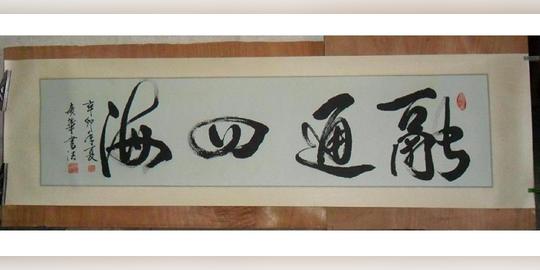 融通四海
辛卯
書法